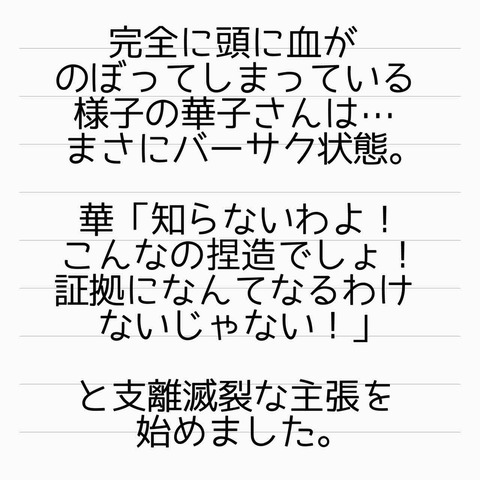 完全に頭に血が
のぼってしまっている
様子の華子さんは…
まさにバーサク状態。
華「知らないわよ！
こんなの捏造でしょ！
証拠になんてなるわけ
ないじゃない！」
と支離滅裂な主張を
始めました。